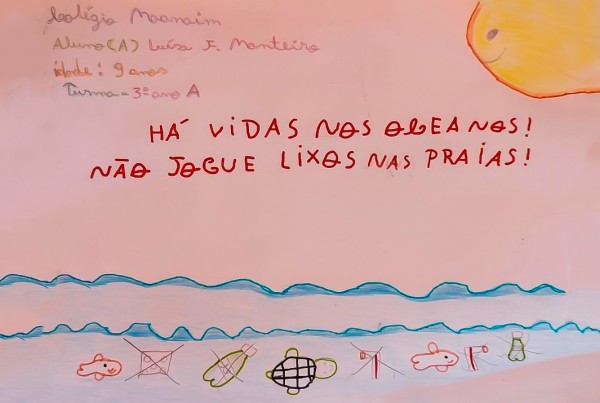 Colégio Maanaim
Aluno(A) Luísa F. Monteiro
idade: 9 anos
Turma = 3º ano A
HÁ VIDAS NOS OCEANOS!
NÃO JOGUE LIXOS NAS PRAIAS!